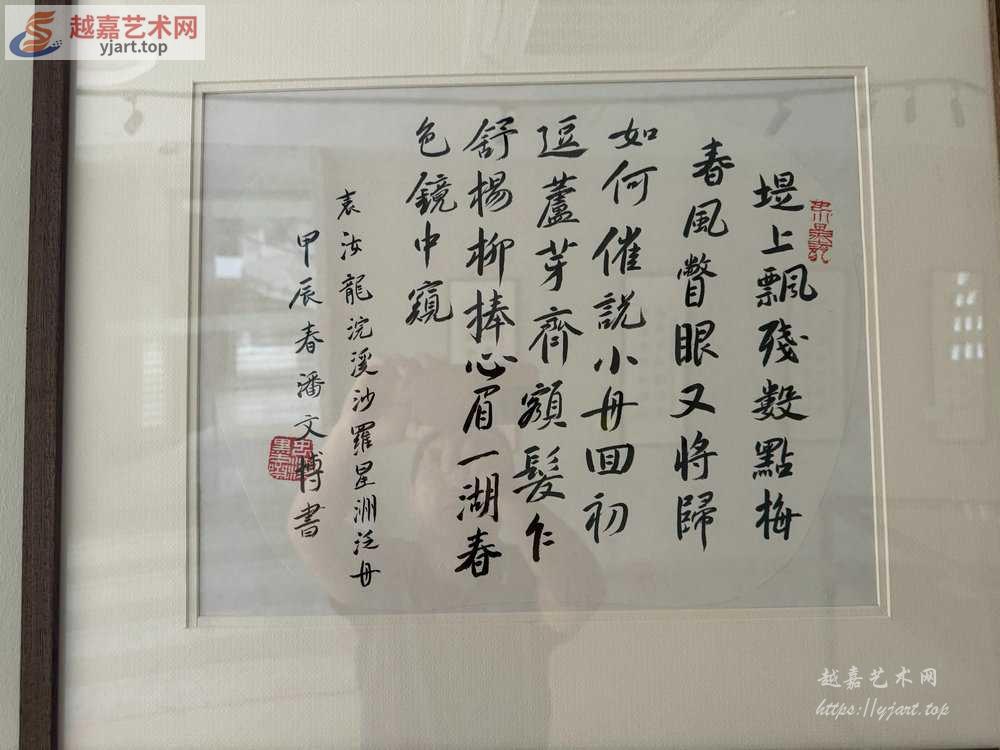 越嘉艺术网
yjart.top
堤上飄殘數點梅
春風瞥眼又將歸
如何催說小舟回初
逗蘆芽齊額髮乍
舒楊柳捧心眉一湖春
色鏡中窺
袁汝龍浣溪沙羅星洲泛舟
甲辰春潘文博書
越嘉艺术网
https://yjart.top